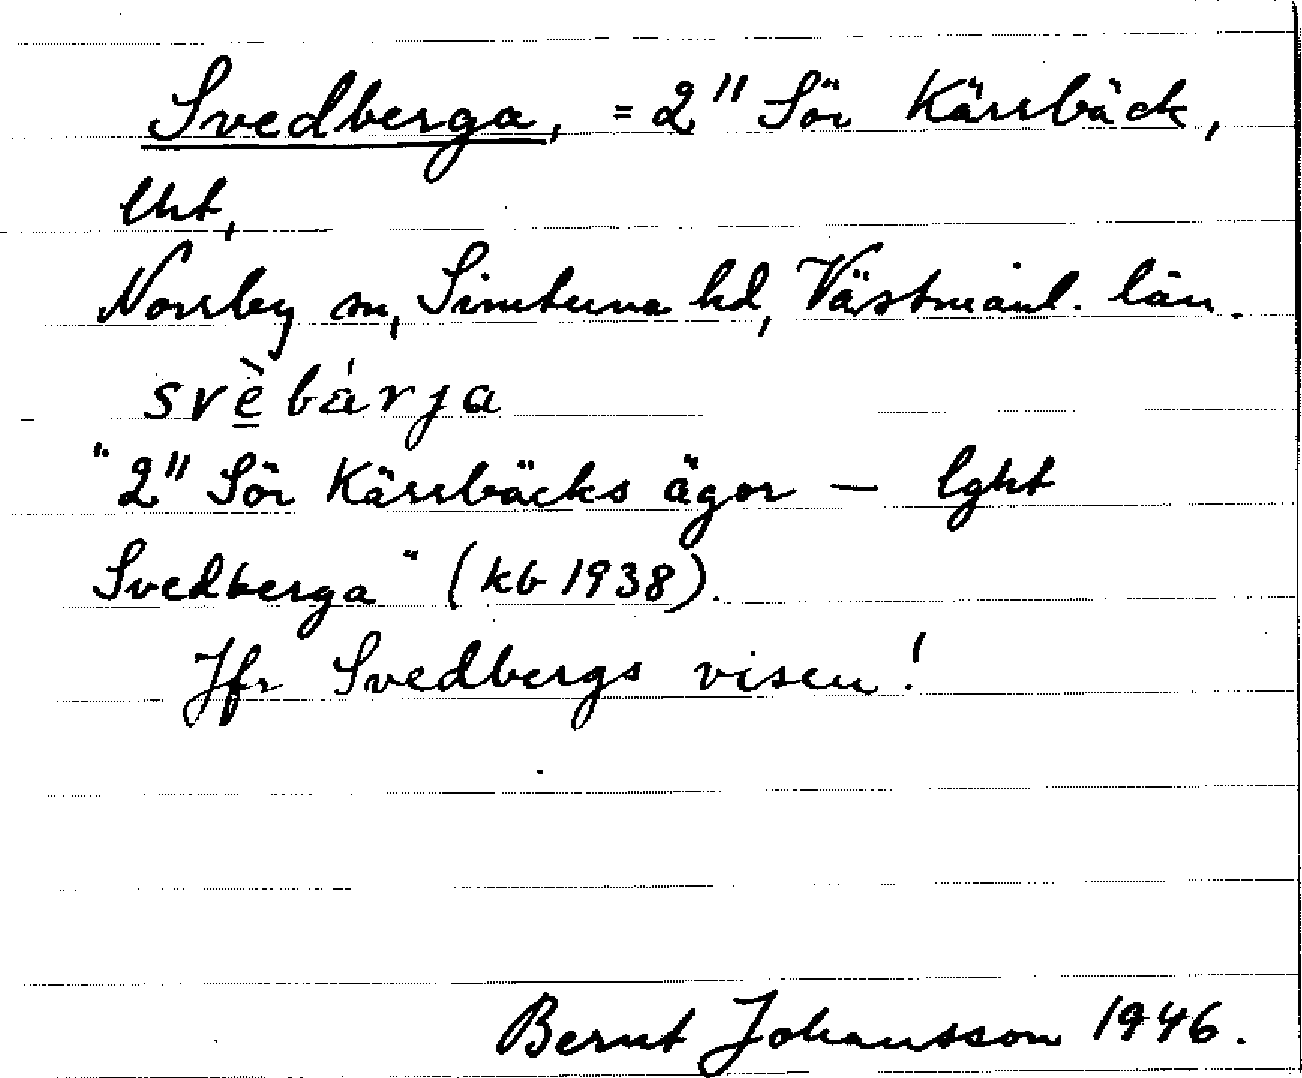 Svedberga, = 2" Sör Kärrbäck,
lht,
Norrby sn, Simtuna hd, Västmanl. län.
svè̱bárja
"2" Sör Kärrbäcks ägor – lght
Svedberga" (kb 1938).
Jfr Svedbergs visen!
Bernt Johansson 1946.